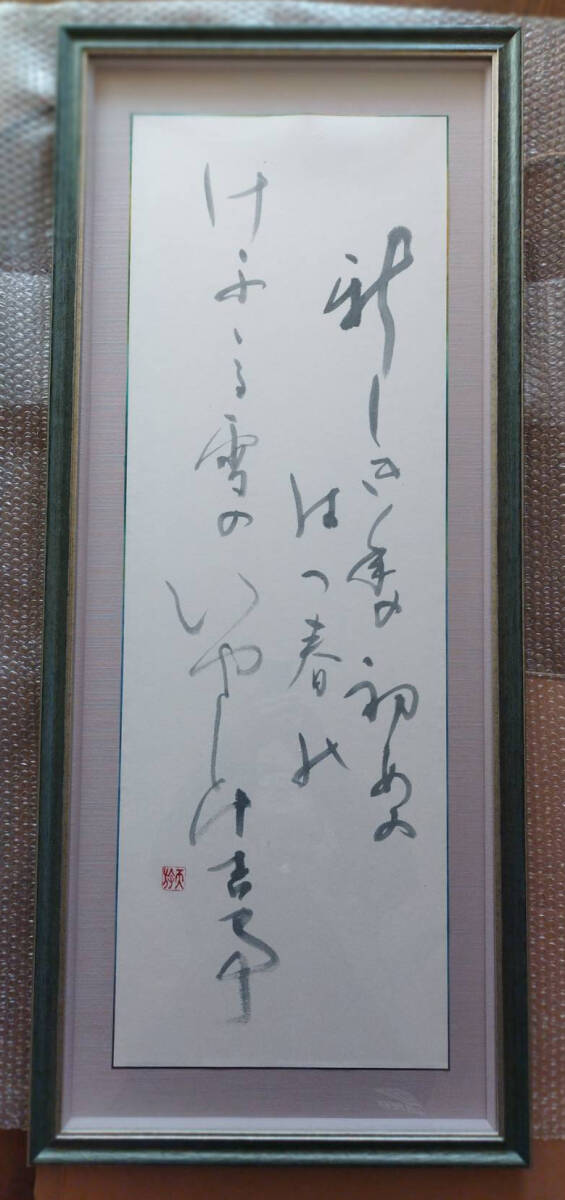 新しき年の初めの
はつ春の
けふゝる雪のいやしけ吉事